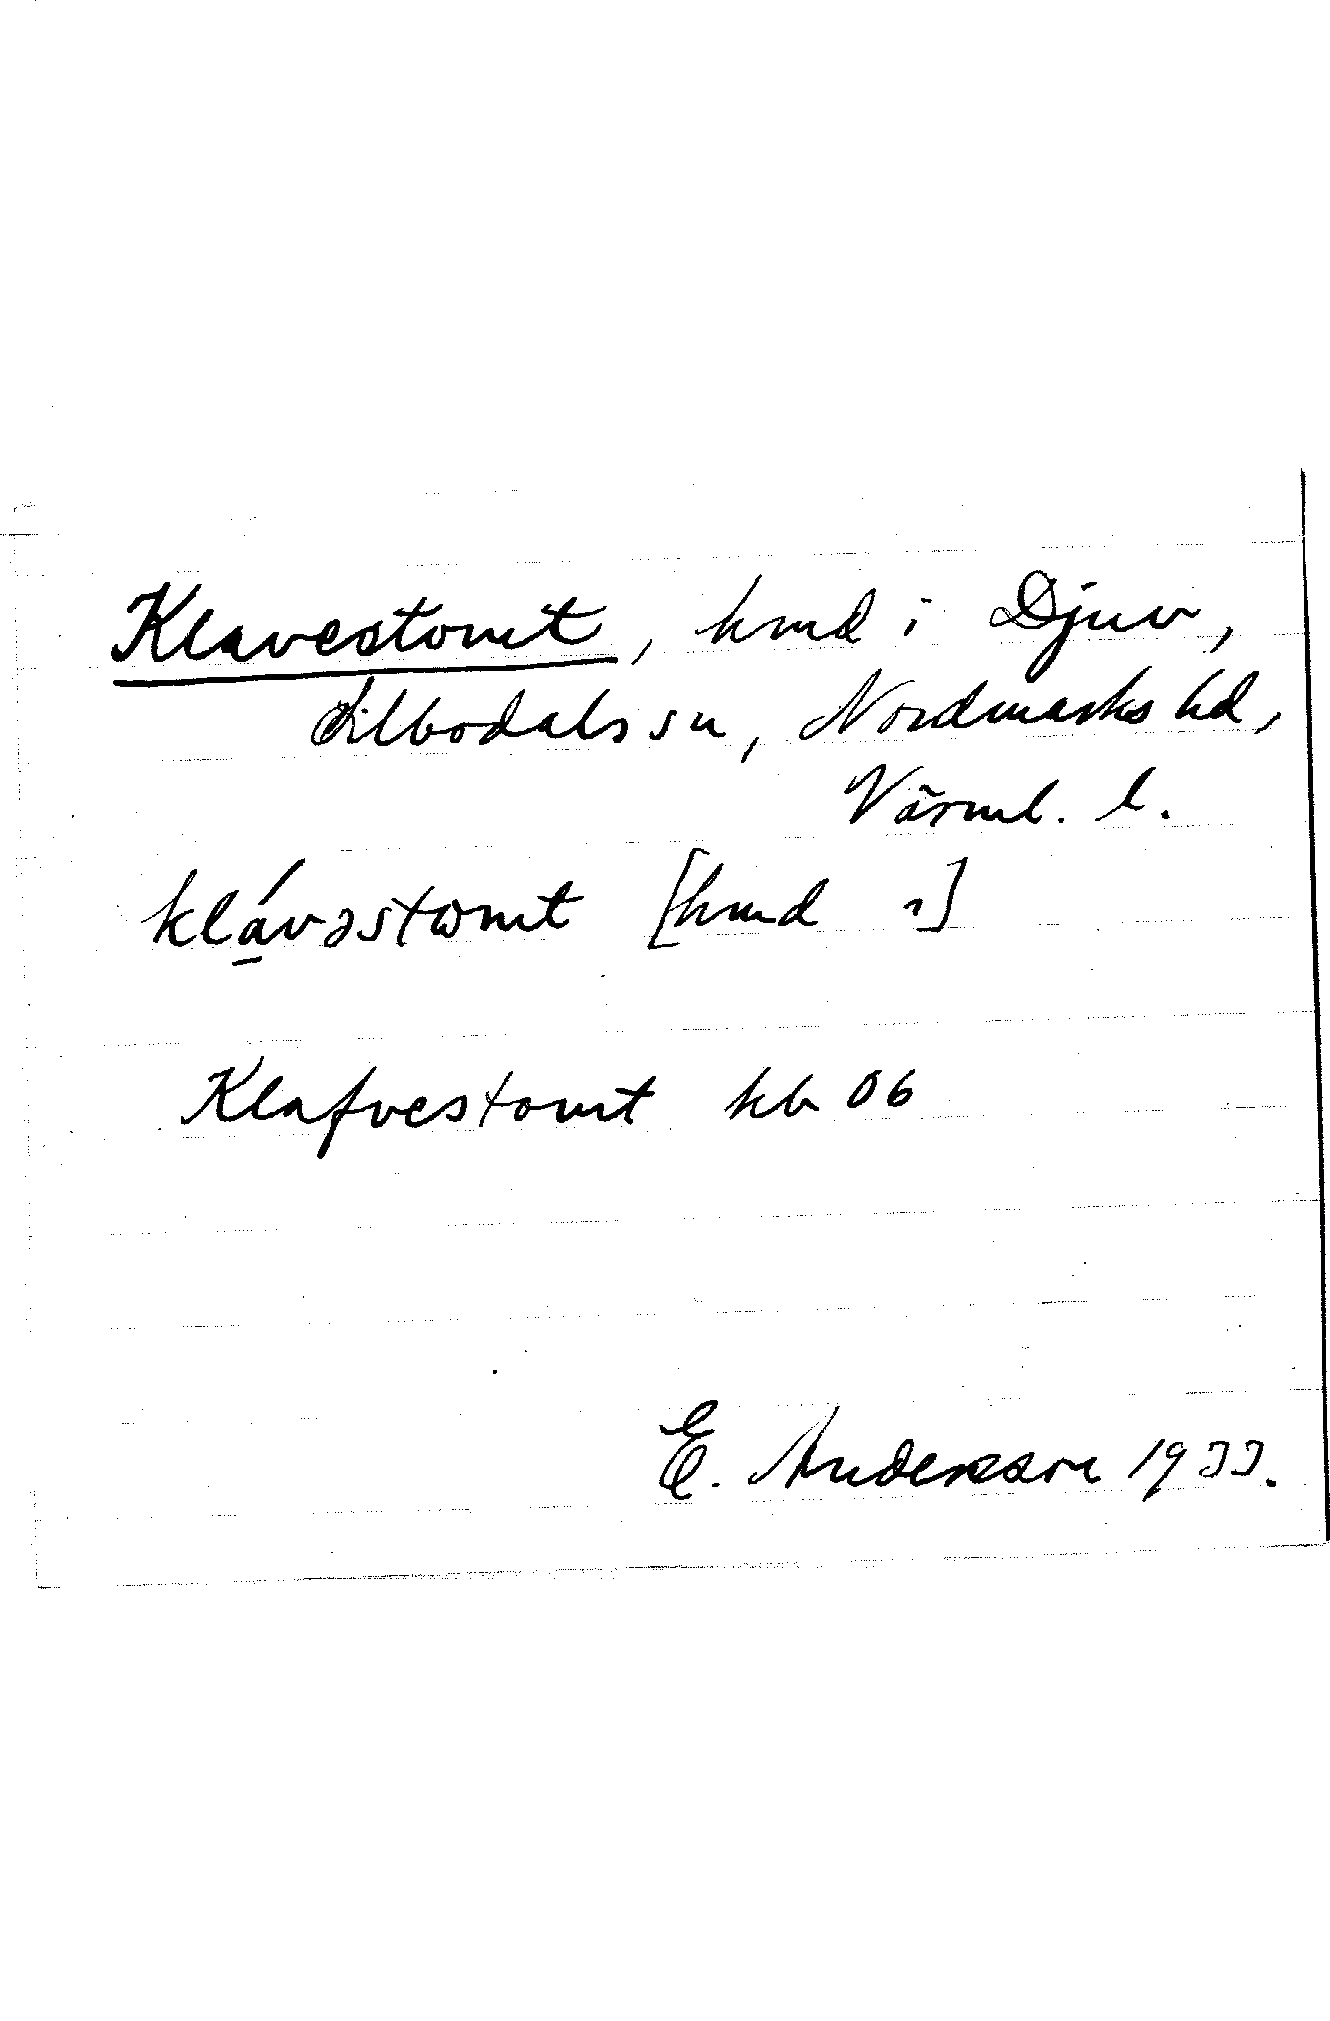 Klavestomt, hmd i Djuv,
Silbodals sn, Nordmarks hd,
Värml. l.
klávəstωmt [hmd 1]
Klafvestomt kb 06
E. Andersson 1933.